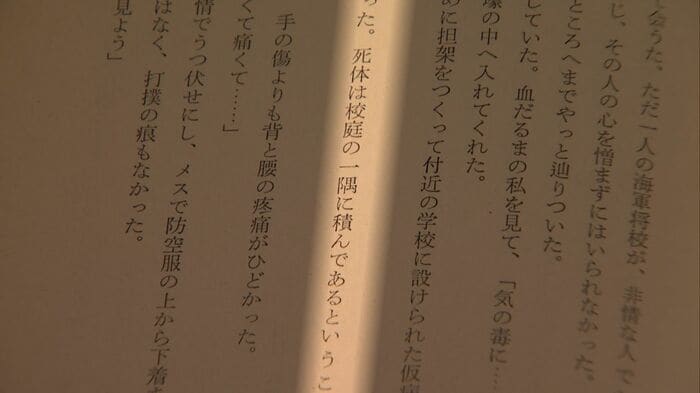 会うた。ただ一人の海軍将校が、非情な人で
じ、その人の心を憎まずにはいられなかった。
ところへまでやっと辿りついた。
していた。血だるまの私を見て、「気の毒に…
壕の中へ入れてくれた。
めに担架をつくって付近の学校に設けられた仮病
った。死体は校庭の一隅に積んであるというこ
手の傷よりも背と腰の疼痛がひどかった。
くて痛くて……」
情でうつ伏せにし、メスで防空服の上から下着ま
はなく、打撲の痕もなかった。
見よう」